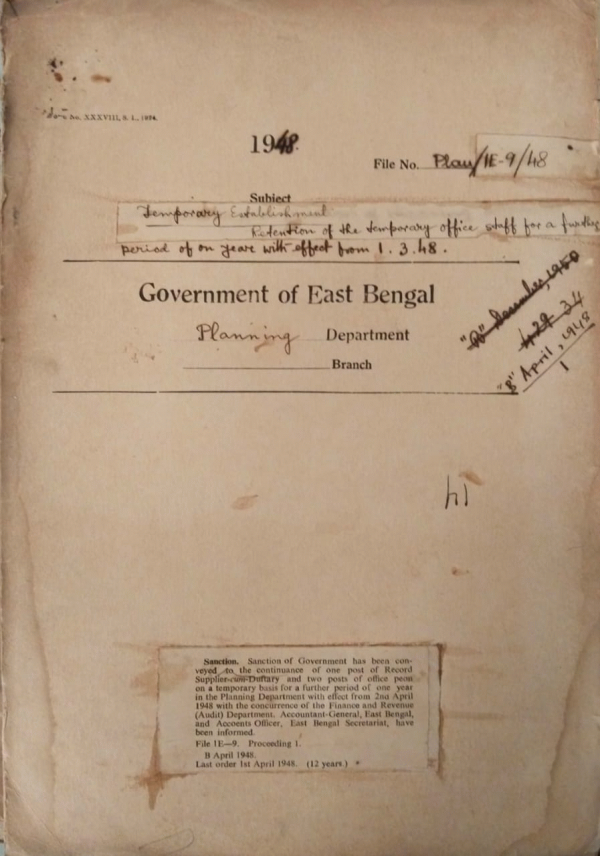 No. XXXVIII, S. I., 1894.
1948.
File No. Plan/1E-9/48
Subject
Temporary Establishment
Retention of the temporary office staff for a further
period of on year with effect from 1.3.48.
Government of East Bengal
Planning Department
Branch
"B" April, 1948
1
14
Sanction. Sanction of Government has been con-
veyed to the continuance of one post of Record
Supplier-cum-Duftary and two posts of office peon
on a temporary basis for a further period of one year
in the Planning Department with effect from 2nd April
1948 with the concurrence of the Finance and Revenue
(Audit) Department. Accountant-General, East Bengal,
and Accounts Officer, East Bengal Secretariat, have
been informed.
File 1E—9. Proceeding 1.
B April 1948.
Last order 1st April 1948. (12 years.)